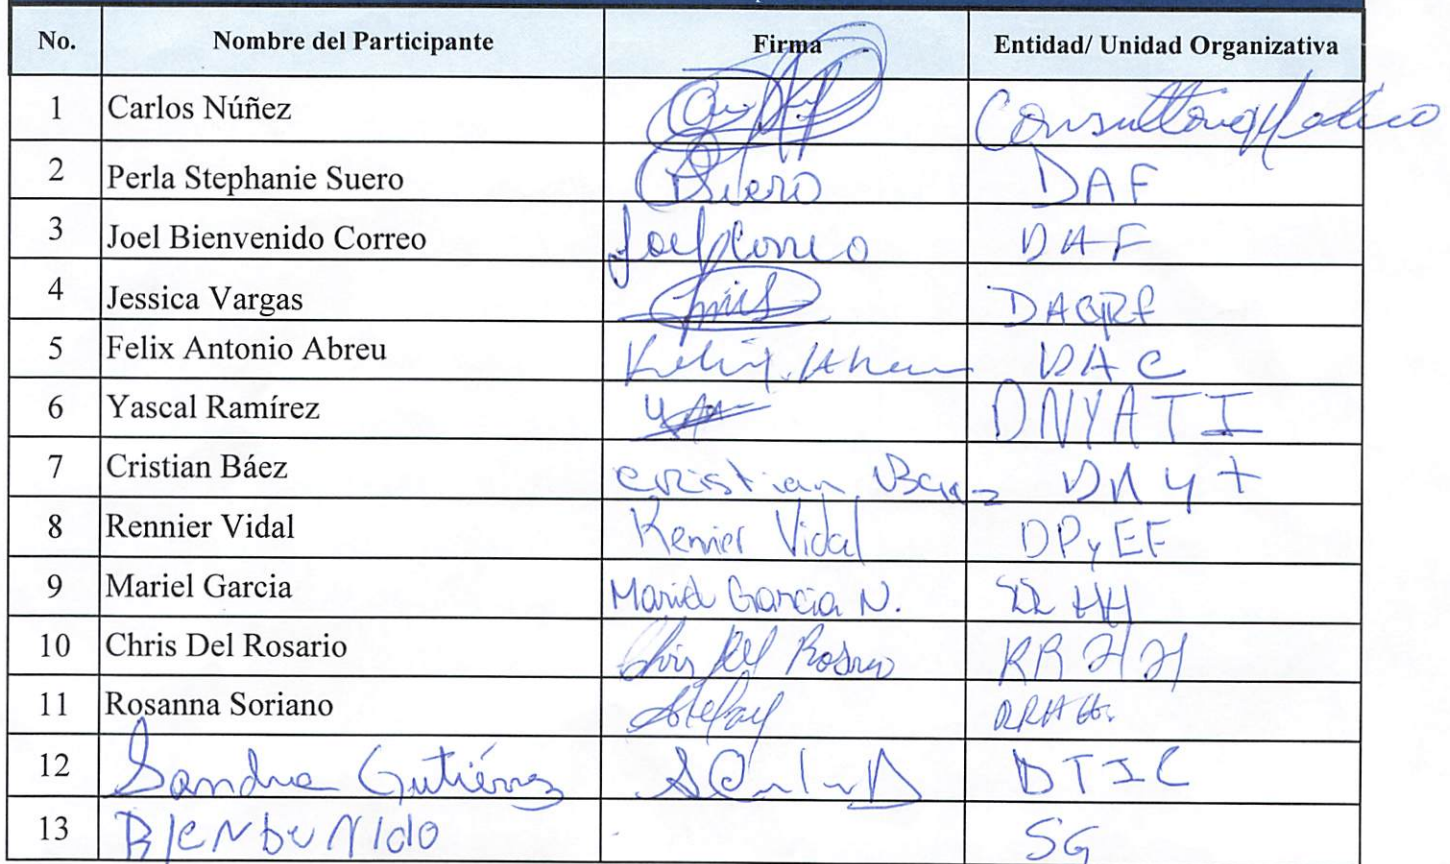 No. Nombre del Participante Firma Entidad/ Unidad Organizativa
1 Carlos Núñez
2 Perla Stephanie Suero Suero DAF
3 Joel Bienvenido Correo Joel Correo DAF
4 Jessica Vargas
5 Felix Antonio Abreu Felix Abreu DAC
6 Yascal Ramírez DNYATI
7 Cristian Báez Cristian Baez
8 Rennier Vidal Rennier Vidal DPyEF
9 Mariel Garcia Mariel Garcia N. HH
10 Chris Del Rosario Chris Del Rosario RRHH
11 Rosanna Soriano
12 Sandra Gutiérrez DTIC
13 BIenbeNIdo SG